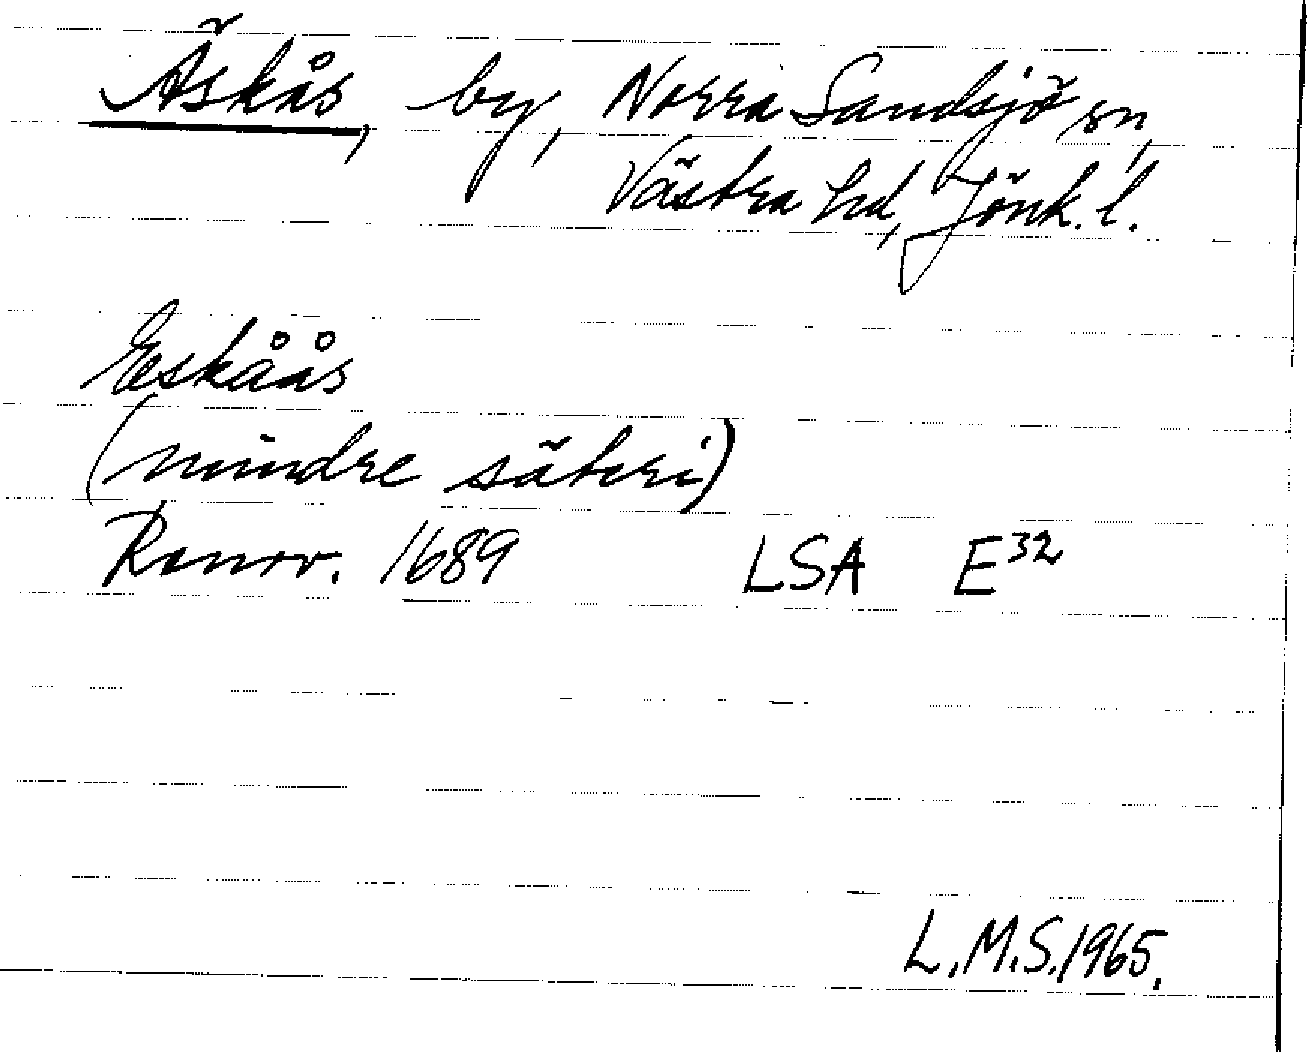 Äskås, by, Norra Sandsjö sn,
Västra hd, Jönk. l.
Eskåås
(mindre säteri)
Renov. 1689 LSA E³²
L.M.S. 1965.